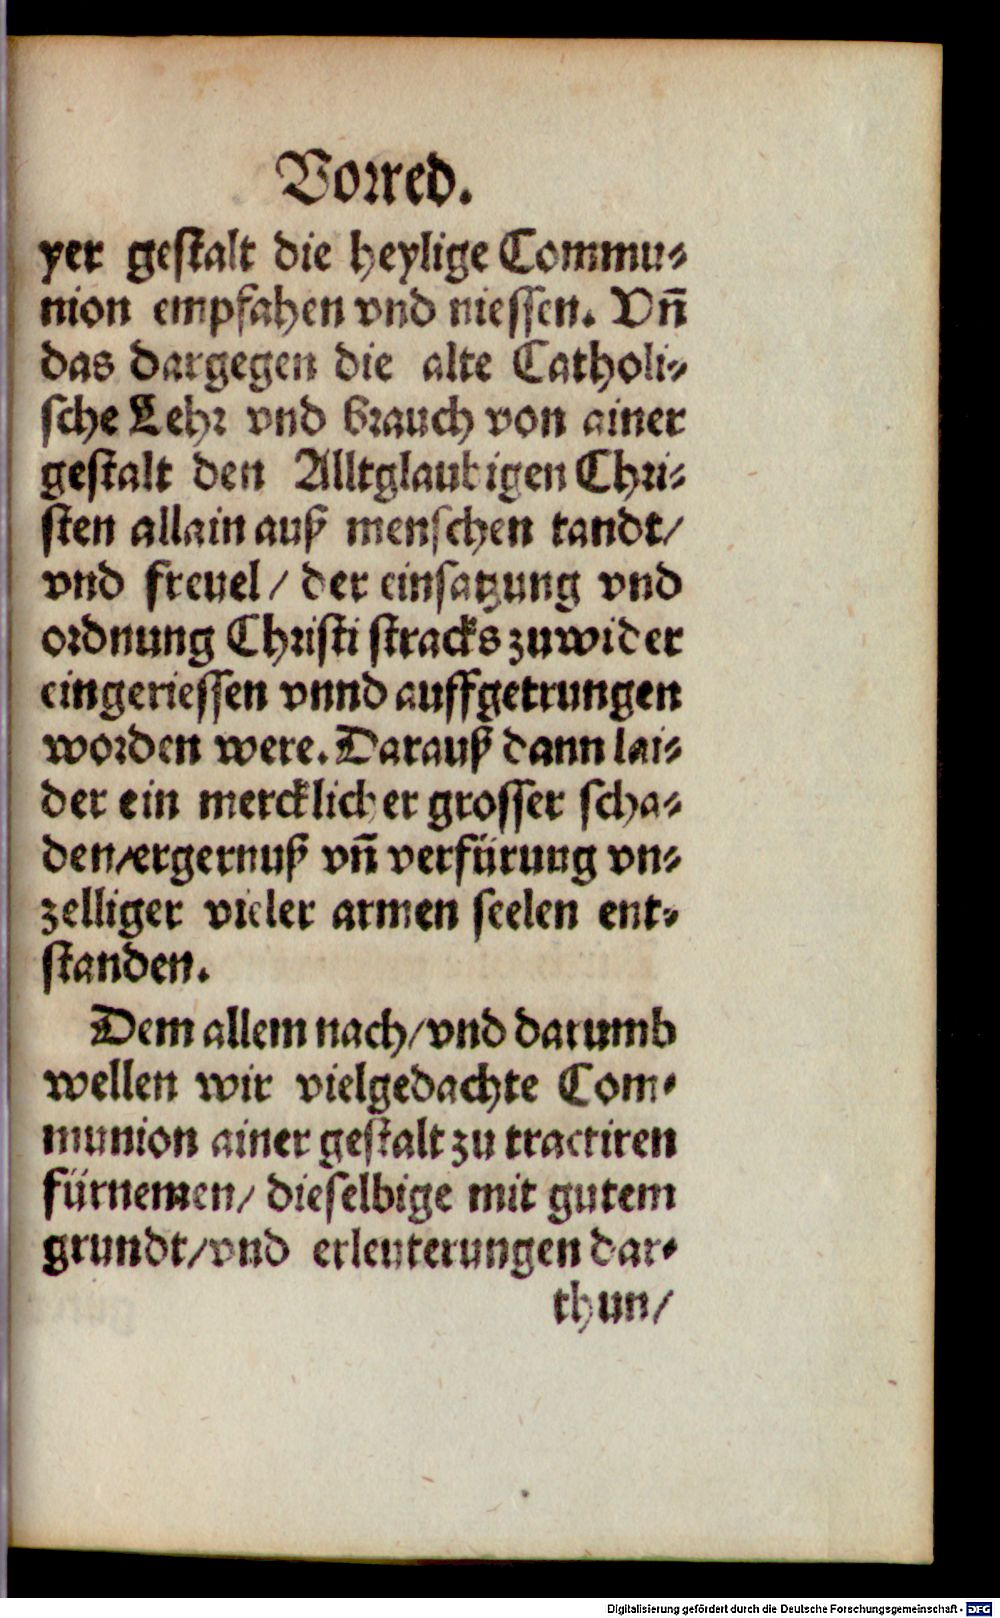 Vorred.
yer gestalt die heylige Commu-
nion empfahen vnd niessen. Vñ
das dargegen die alte Catholi-
sche Lehr vnd brauch von ainer
gestalt den Alltglaubigen Chri-
sten allain auß menschen tandt/
vnd freuel/ der einsatzung vnd
ordnung Christi stracks zuwider
eingeriessen vnnd auffgetrungen
worden were. Darauß dann lai-
der ein mercklicher grosser scha-
den/ergernuß vñ verfürung vn-
zelliger vieler armen seelen ent-
standen.
Dem allem nach/vnd darumb
wellen wir vielgedachte Com-
munion ainer gestalt zu tractiren
fürnemen/ dieselbige mit gutem
grundt/vnd erleuterungen dar-
thun/
Digitalisierung gefördert durch die Deutsche Forschungsgemeinschaft - DFG